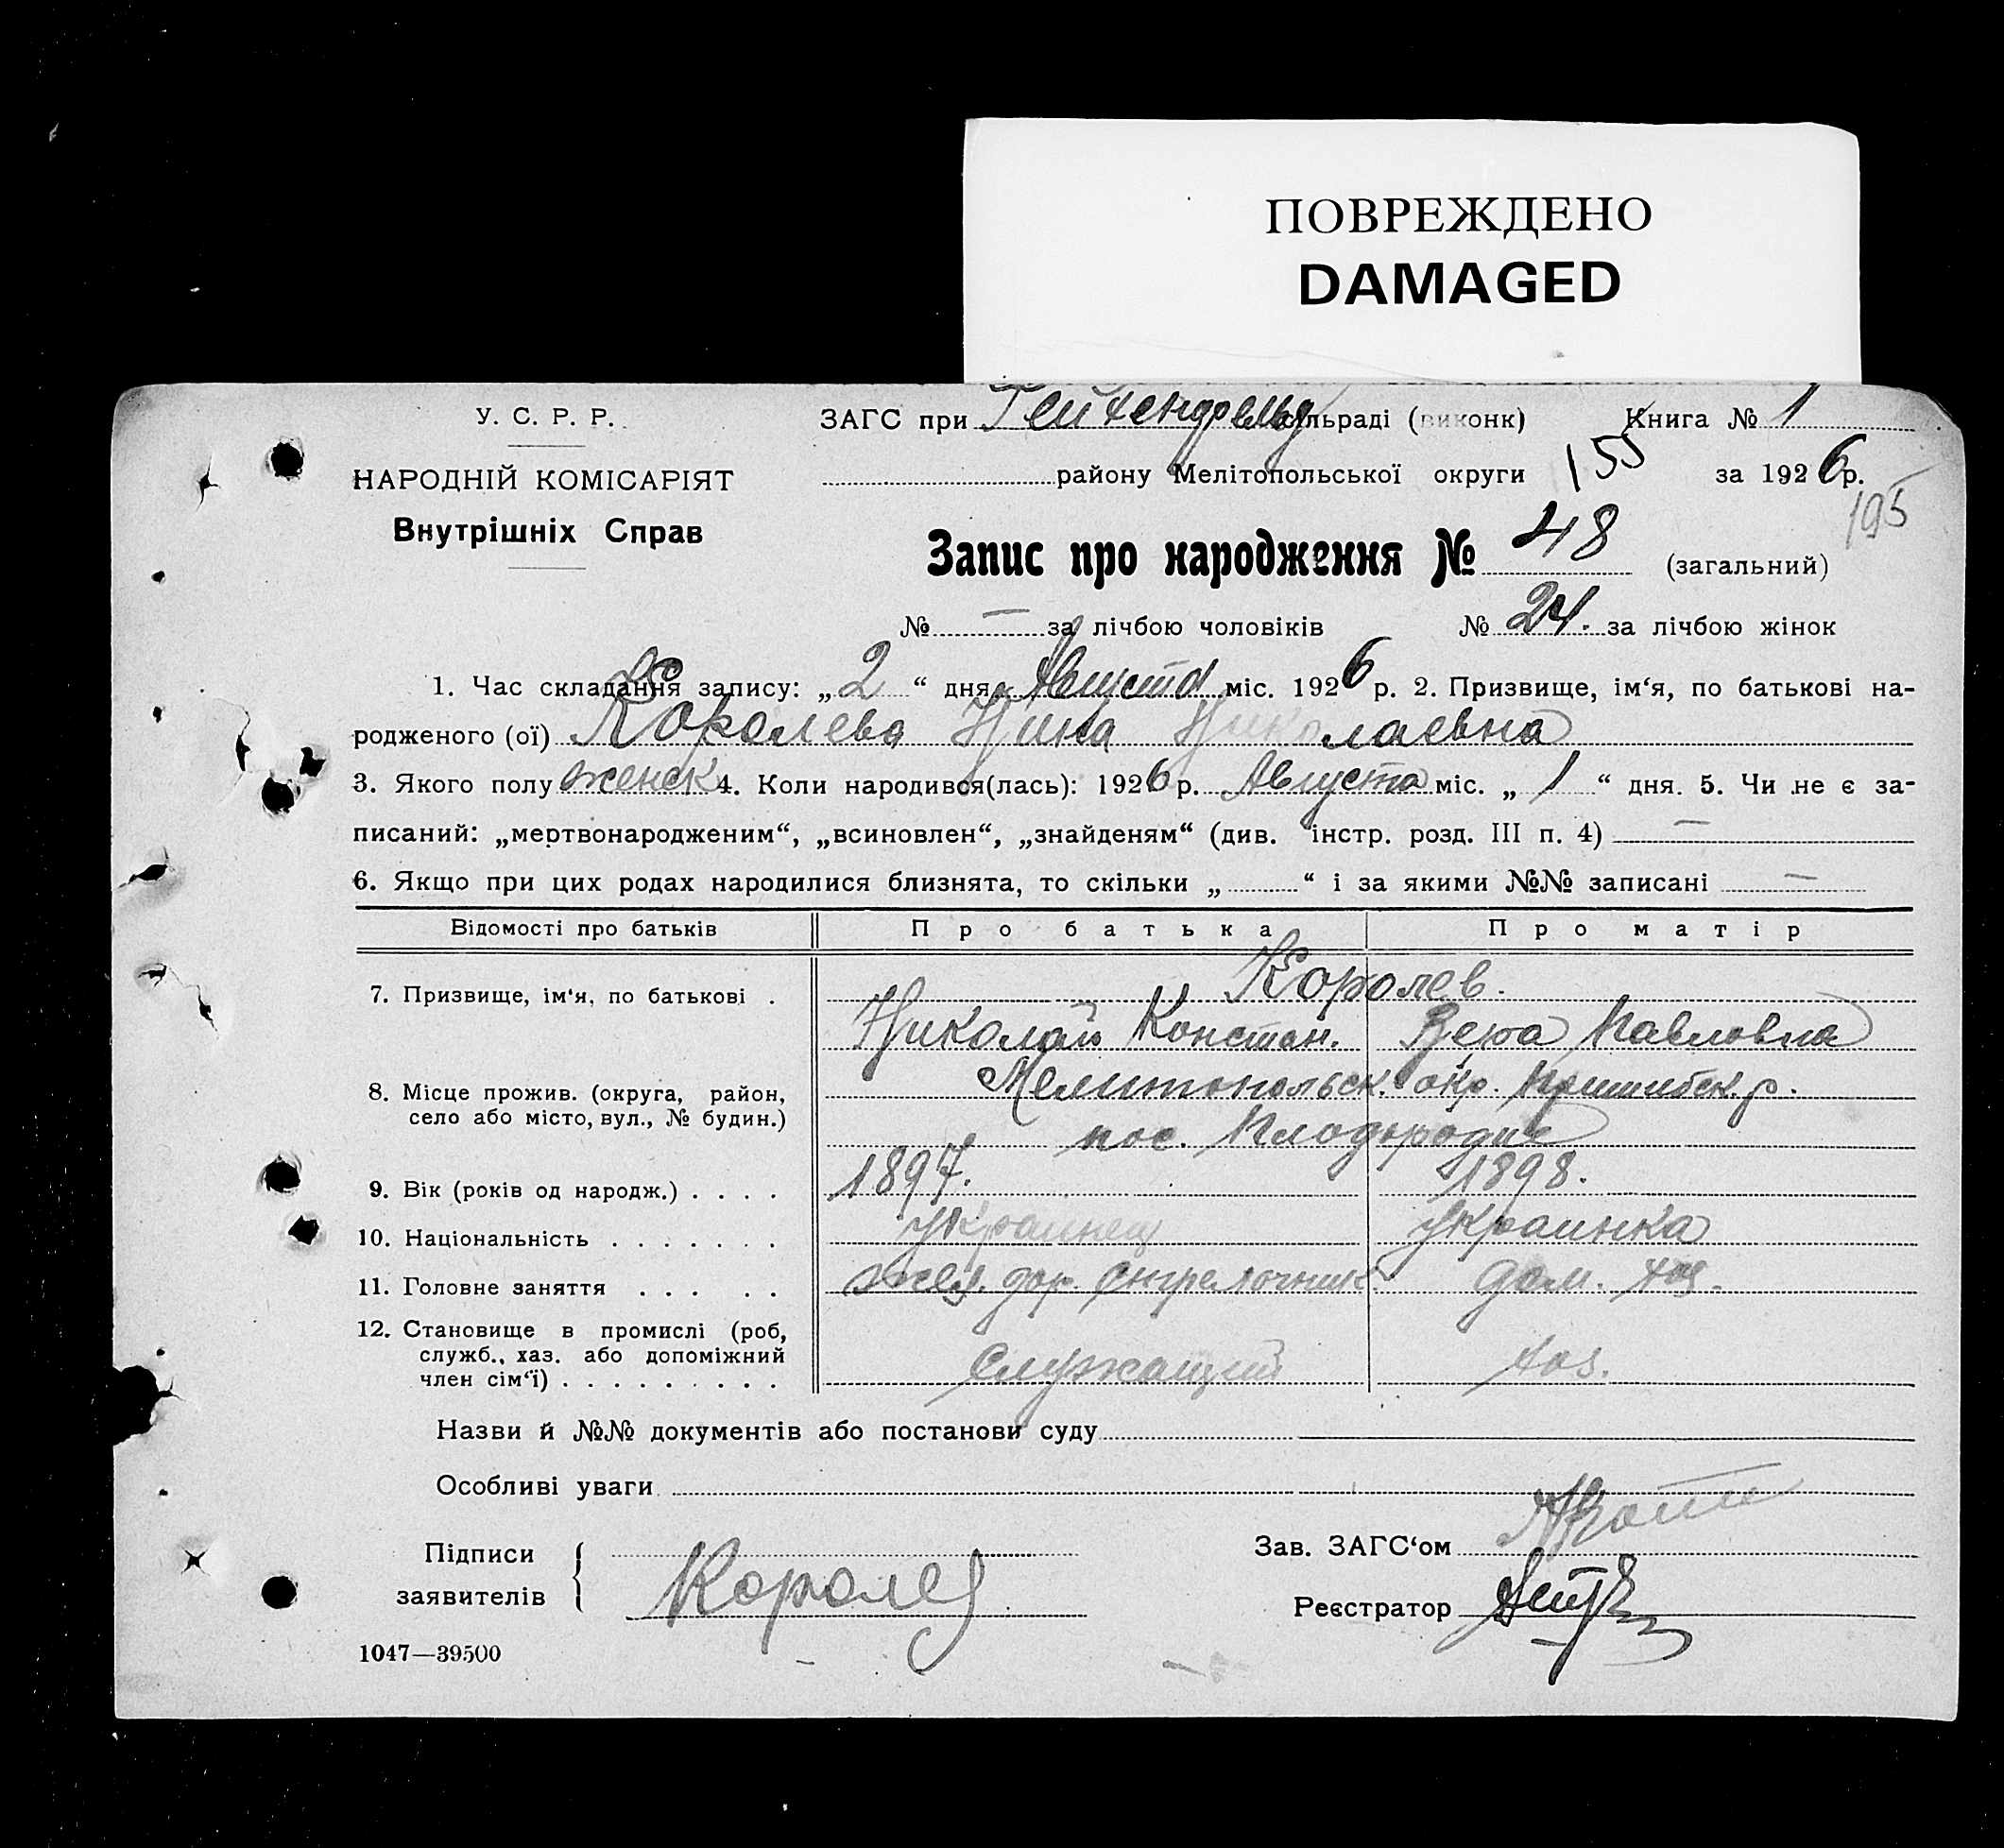 ПОВРЕЖДЕНО
DAMAGED
У. С. Р. Р.
ЗАГС при сільраді (виконк) Книга № 1
НАРОДНІЙ КОМІСАРІЯТ
району Мелітопольської округи 155 за 1926 р.
195
Внутрішніх Справ
Запис про народження № 48 (загальний)
№ — за лічбою чоловіків № 24. за лічбою жінок
1. Час складання запису: „2“ дня Августа міс. 1926 р. 2. Призвище, ім‘я, по батькові на-
родженого (ої) Королева Нина Николаевна
3. Якого полу женск 4. Коли народився(лась): 1926 р. Августа міс. „1“ дня. 5. Чи не є за-
писаний: „мертвонародженим“, „всиновлен“, „знайденям“ (див. інстр. розд. III п. 4) —
6. Якщо при цих родах народилися близнята, то скільки „ “ і за якими №№ записані —
Відомості про батьків Про батька Про матір
Королев.
7. Призвище, ім‘я, по батькові .
Николай Констан. Вера Павловна
8. Місце прожив. (округа, район, село або місто, вул., № будин.)
Мелитопольск. окр. Пришибск. р.
пос. Плодородие
9. Вік (років од народж.) . . . . 1897. 1898.
10. Національність . . . . . . . украинец украинка
11. Головне заняття . . . . . жел. дор. стрелочник. дом. хоз.
12. Становище в промислі (роб,
служб., хаз. або допоміжний
член сім‘ї) . . . . . . . . . служащий хоз.
Назви й №№ документів або постанови суду
Особливі уваги
Підписи
заявителів
Королев
Зав. ЗАГС‘ом
Реєстратор
1047—39500